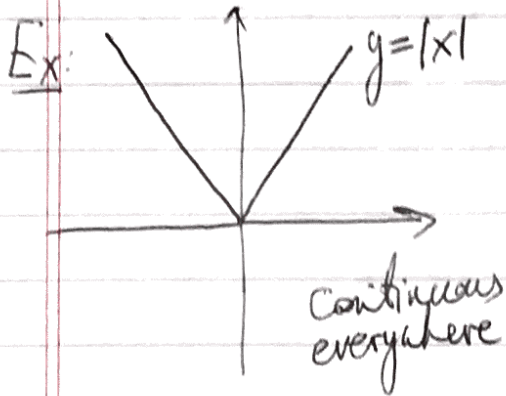 Ex:
y=|x|
continuous
everywhere